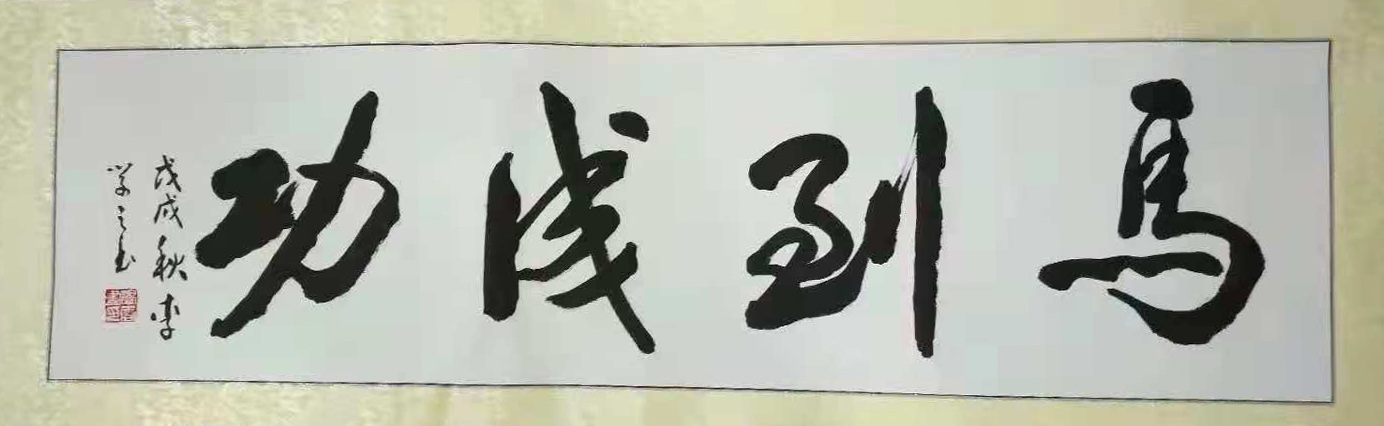 馬到成功
戊戌秋李
学之书